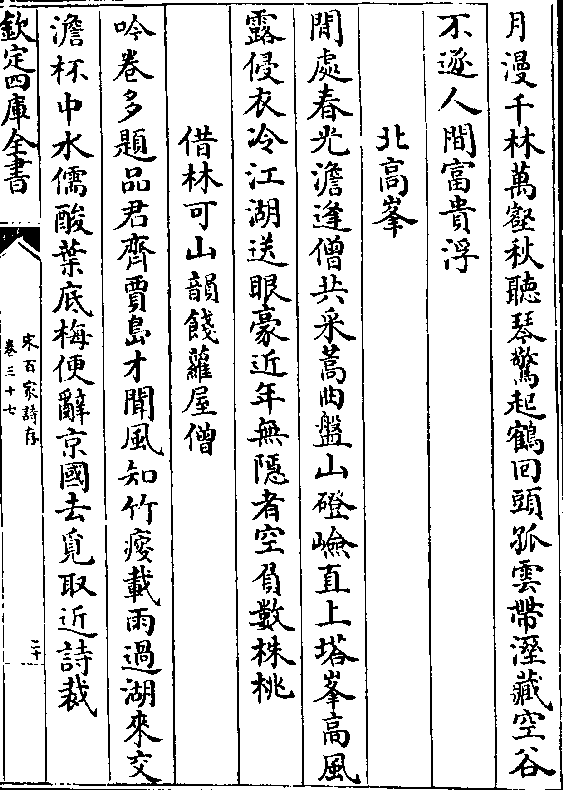 月漫千林萬壑秋聽琴驚起鶴回頭孤雲帶溼藏空谷
不逐人間富貴浮
北高峯
閒處春光澹逢僧共采蒿曲盤山磴嶮直上塔峯高風
露侵衣冷江湖送眼豪近年無隱者空負數株桃
借林可山韻餞蘿屋僧
吟卷多題品君齊賈島才聞風知竹瘦載雨過湖來交
澹杯中水儒酸葉底梅便辭京國去覓取近詩裁
欽定四庫全書
宋百家詩存
卷三十七
二十